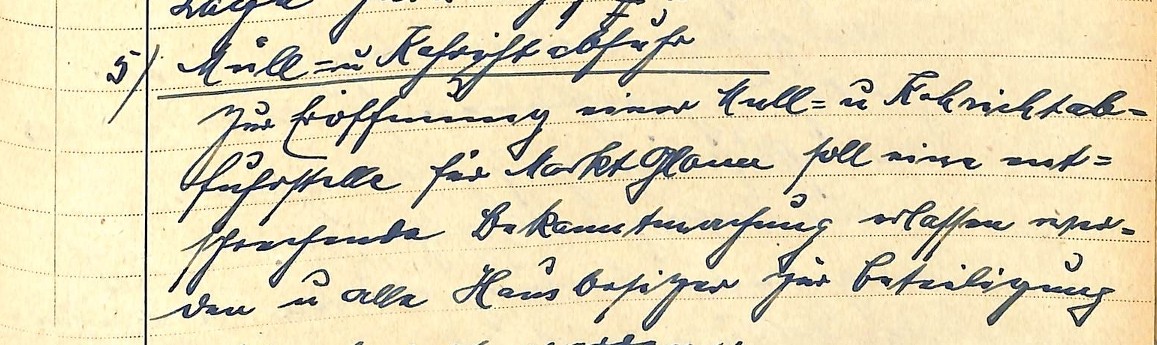 5) Müll= u Kehrichtabfuhr
Zur Eröffnung einer Müll= u Kehrichtab=
fuhrstelle für Markt Glonn soll eine ent=
sprechende Bekanntmachung erlassen wer=
den u alle Hausbesitzer zur Beteiligung